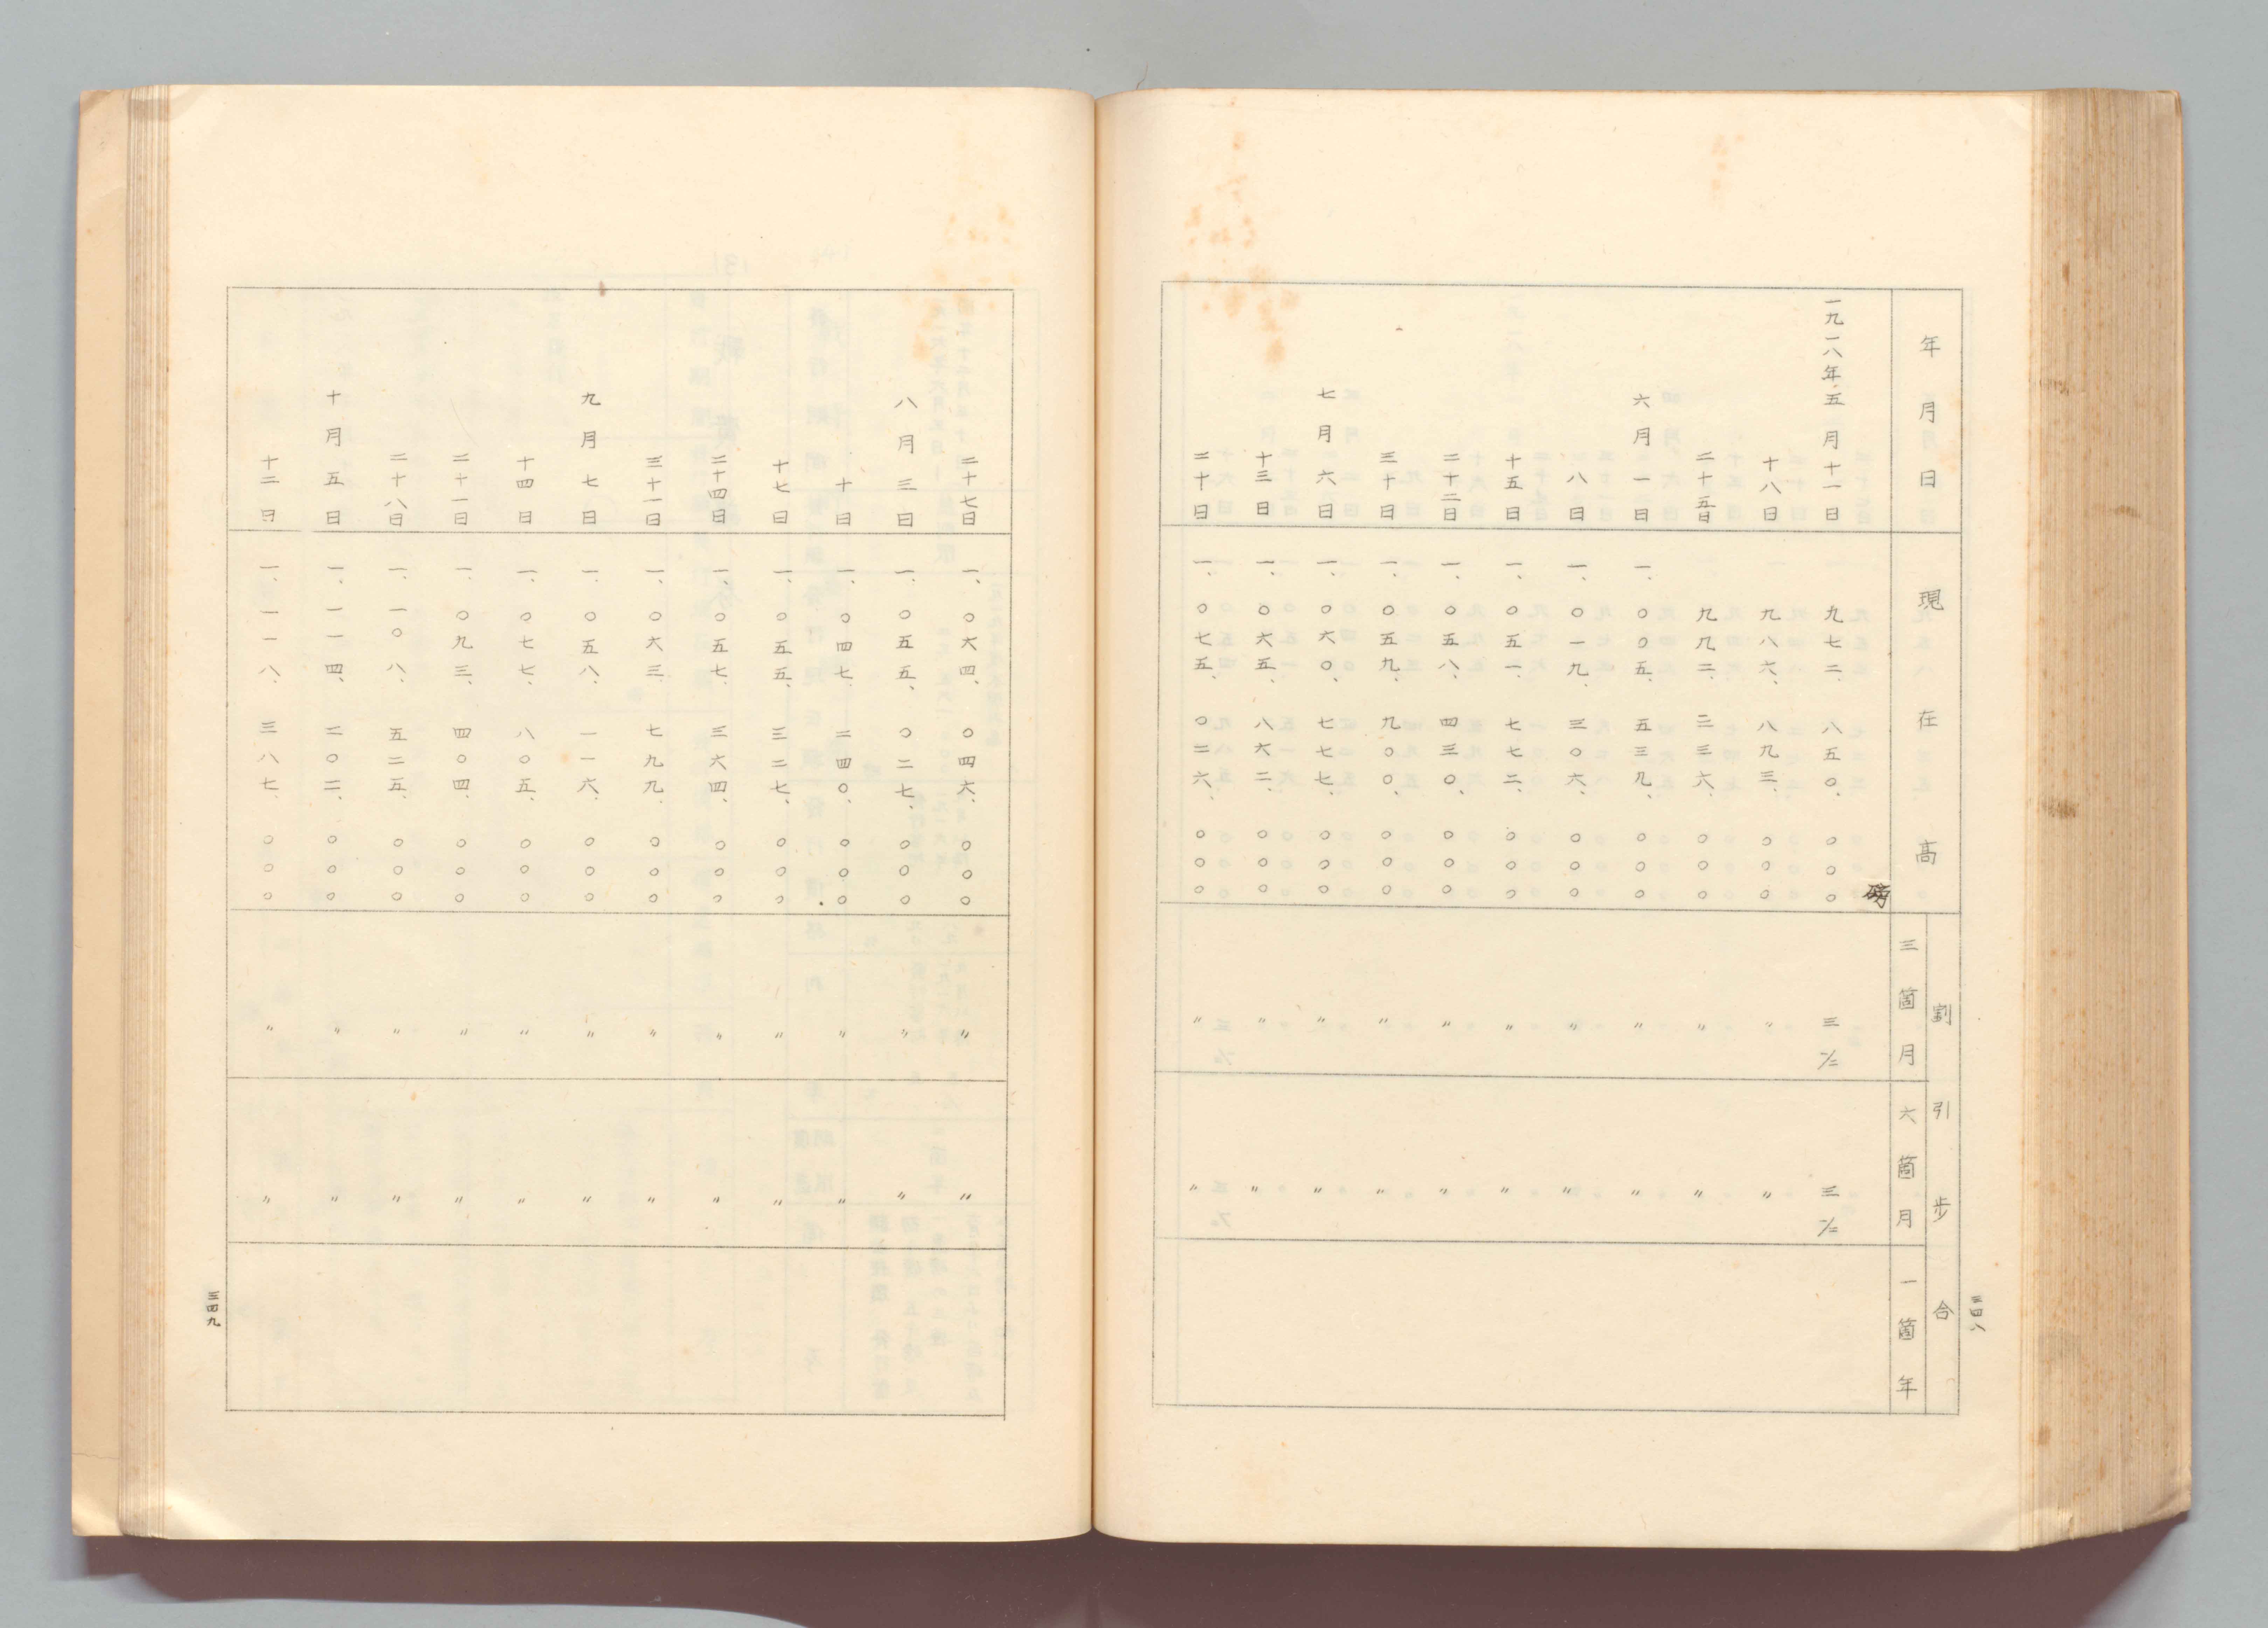 三四八
年月日 現在高 割引歩合
三箇月 六箇月 一箇年
磅
一九一八年五月十一日 九七二、八五〇、〇〇〇 三½ 三½
十八日 九八六、八九三、〇〇〇 〃 〃
二十五日 九九二、二三六、〇〇〇 〃 〃
六月一日 一、〇〇五、五三九、〇〇〇 〃 〃
八日 一、〇一九、三〇六、〇〇〇 〃 〃
十五日 一、〇五一、七七二、〇〇〇 〃 〃
二十二日 一、〇五八、四三〇、〇〇〇 〃 〃
三十日 一、〇五九、九〇〇、〇〇〇 〃 〃
七月六日 一、〇六〇、七七七、〇〇〇 〃 〃
十三日 一、〇六五、八六二、〇〇〇 〃 〃
二十日 一、〇七五、〇二六、〇〇〇 〃 〃
二十七日 一、〇六四、〇四六、〇〇〇 〃 〃
八月三日 一、〇五五、〇二七、〇〇〇 〃 〃
十日 一、〇四七、二四〇、〇〇〇 〃 〃
十七日 一、〇五五、三二七、〇〇〇 〃 〃
二十四日 一、〇五七、三六四、〇〇〇 〃 〃
三十一日 一、〇六三、七九九、〇〇〇 〃 〃
九月七日 一、〇五八、一一六、〇〇〇 〃 〃
十四日 一、〇七七、八〇五、〇〇〇 〃 〃
二十一日 一、〇九三、四〇四、〇〇〇 〃 〃
二十八日 一、一〇八、五二五、〇〇〇 〃 〃
十月五日 一、一一四、二〇二、〇〇〇 〃 〃
十二日 一、一一八、三八七、〇〇〇 〃 〃
三四九